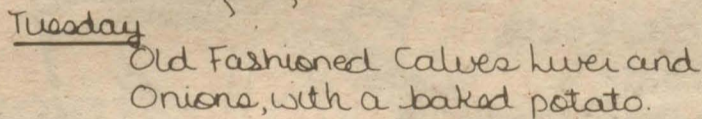 Tuesday
Old Fashioned Calves Liver and
Onions, with a baked potato.